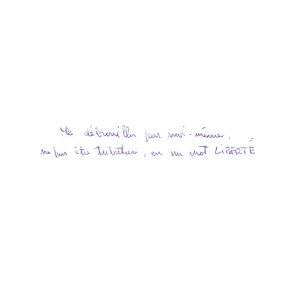 Me débrouiller par moi-même,
ne pas être tributaire, en un mot LIBERTÉ